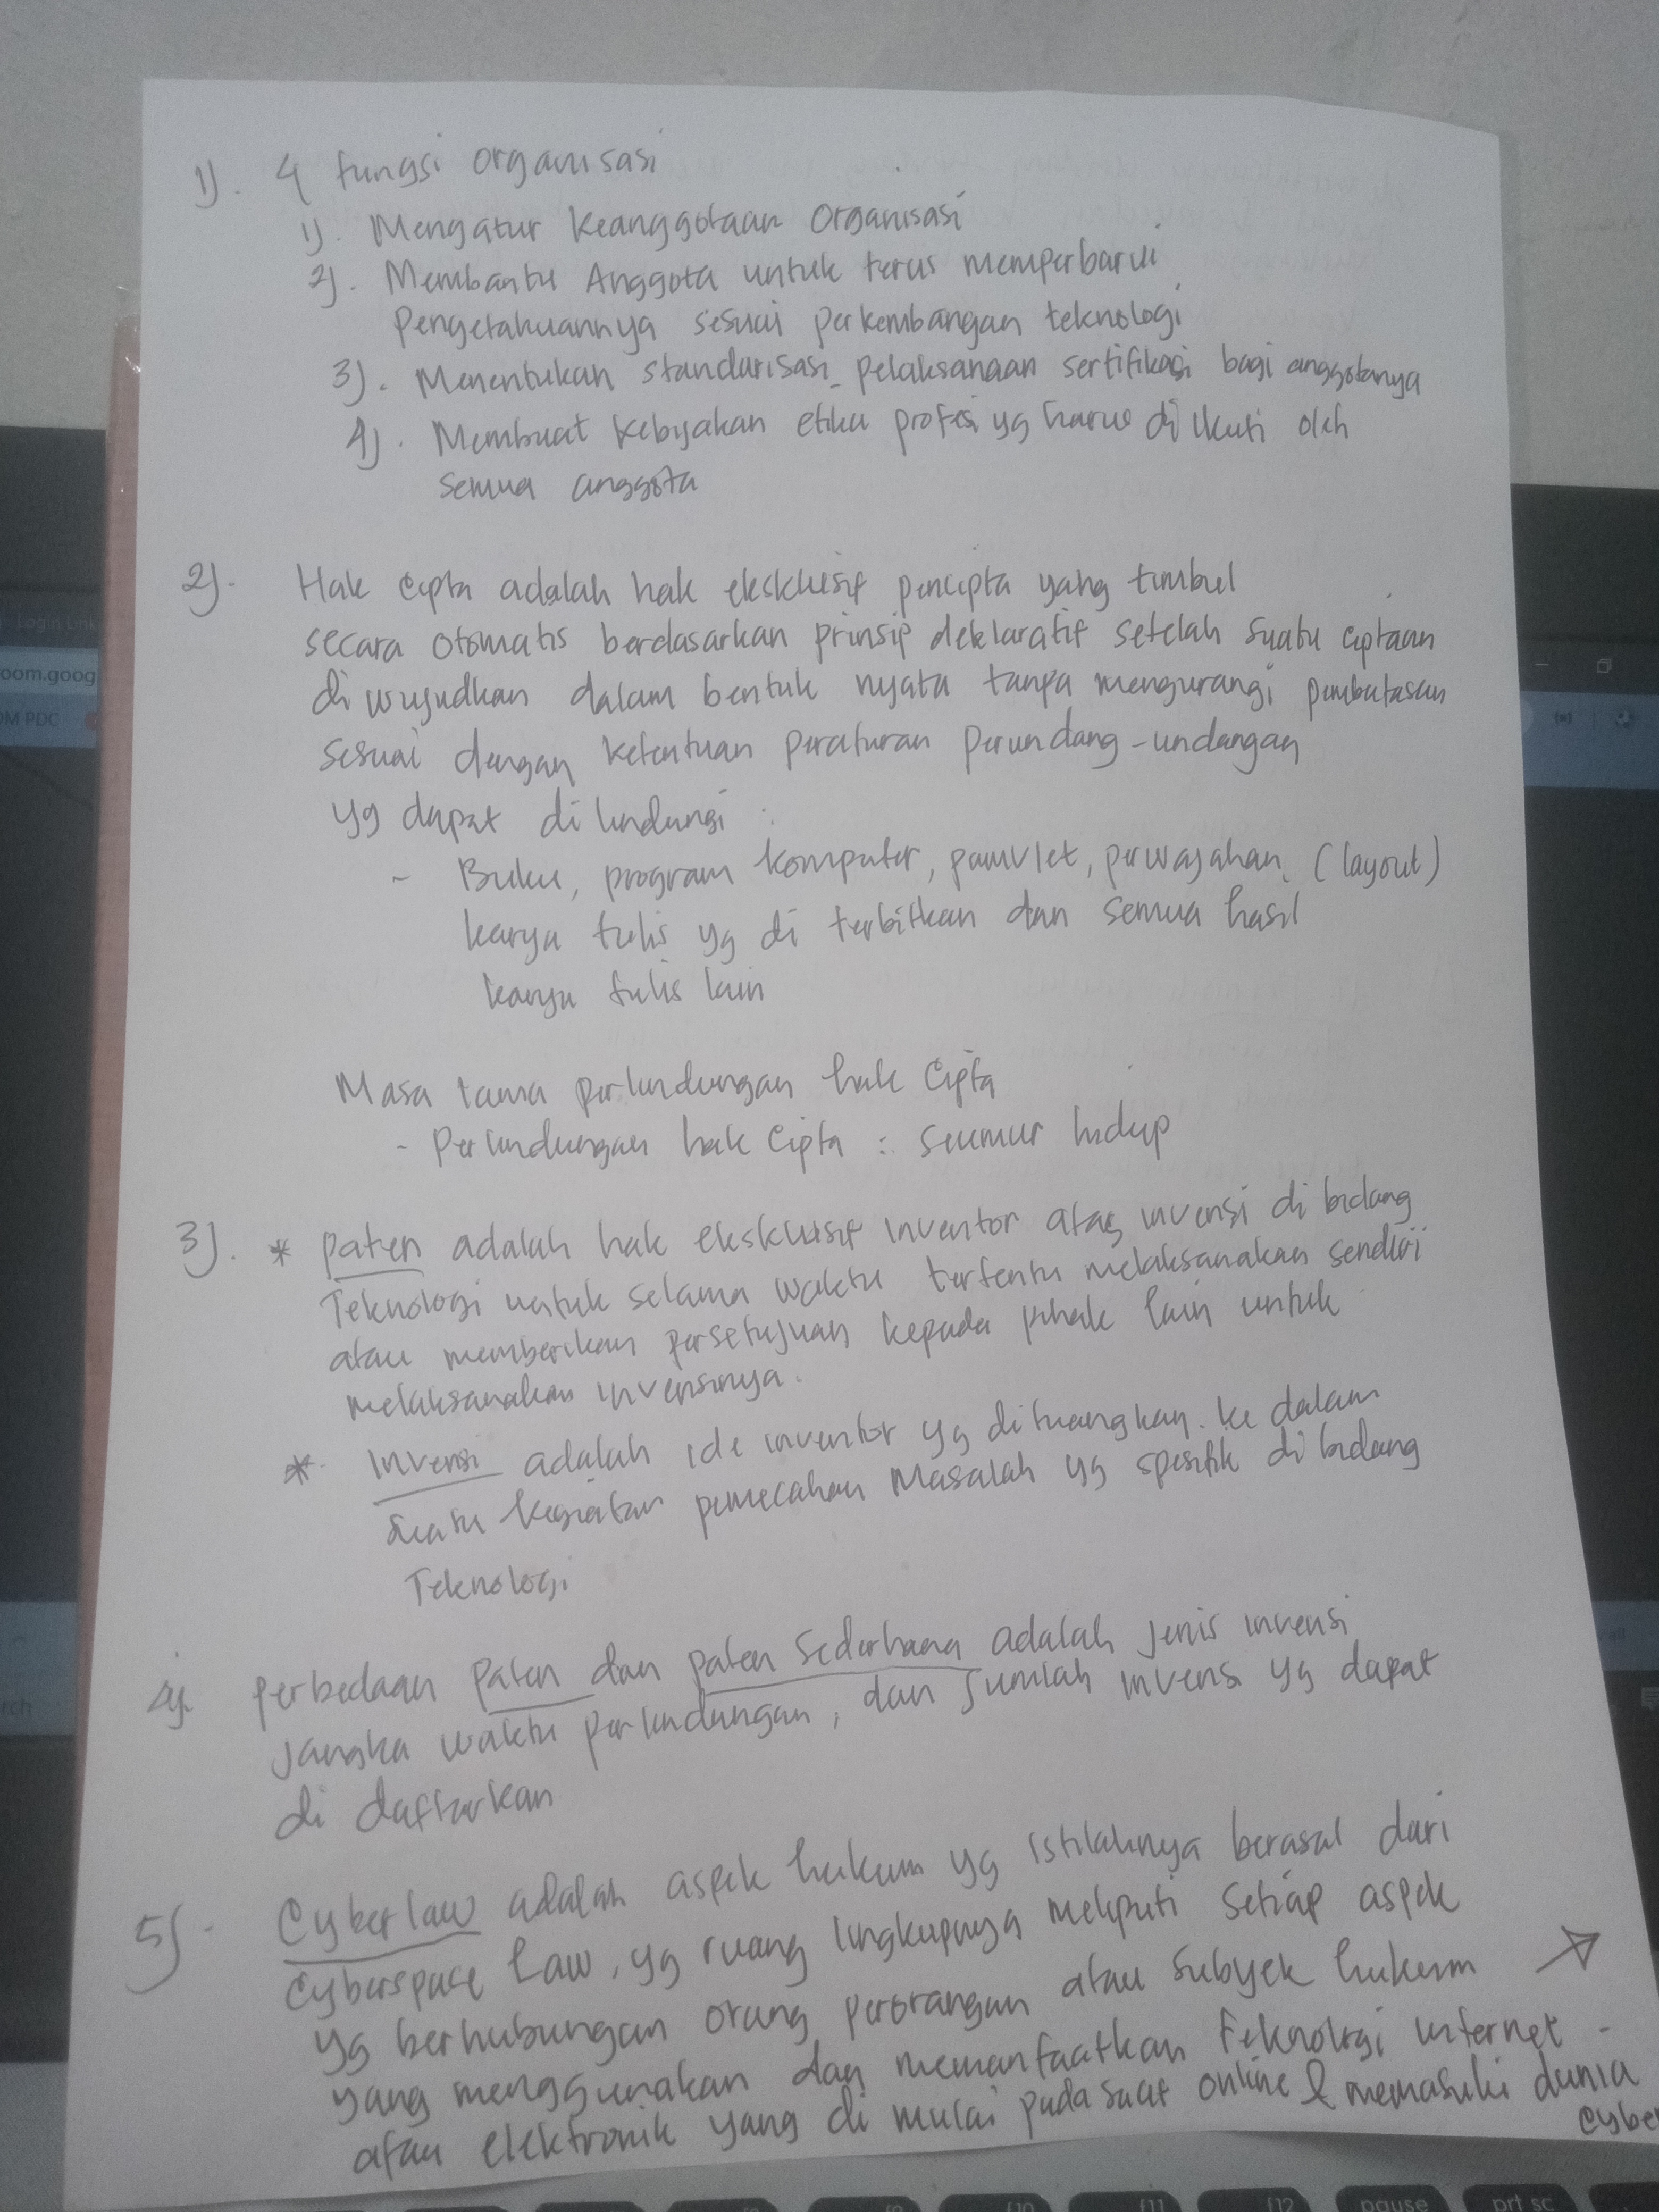 1). 4 fungsi organisasi
1). Mengatur Keanggotaan Organisasi
2). Membantu Anggota untuk terus memperbarui
Pengetahuannya sesuai perkembangan teknologi
3). Menentukan standarisasi pelaksanaan sertifikasi bagi anggotanya
4). Membuat Kebijakan etika profesi yg harus di ikuti oleh
semua anggota
2). Hak Cipta adalah hak eksklusif pencipta yang timbul
secara otomatis berdasarkan prinsip deklaratif setelah suatu ciptaan
di wujudkan dalam bentuk nyata tanpa mengurangi pembatasan
sesuai dengan ketentuan peraturan perundang-undangan
yg dapat di lindungi :
- Buku, program komputer, pamvlet, perwajahan (layout)
karya tulis yg di terbitkan dan semua hasil
karya tulis lain
Masa lama perlindungan hak Cipta
- Perlindungan hak Cipta : seumur hidup
3). * Paten adalah hak eksklusif inventor atas invensi di bidang
Teknologi untuk selama waktu tertentu melaksanakan sendiri
atau memberikan persetujuan kepada pihak lain untuk
melaksanakan invensinya.
* Invensi adalah ide inventor yg dituangkan ke dalam
suatu kegiatan pemecahan Masalah yg spesifik di bidang
Teknologi
4). Perbedaan Paten dan paten Sederhana adalah jenis invensi
jangka waktu perlindungan, dan jumlah invensi yg dapat
di daftarkan
5). Cyberlaw adalah aspek hukum yg istilahnya berasal dari
Cyberspace Law, yg ruang lingkupnya meliputi setiap aspek
yg berhubungan orang perorangan atau subyek hukum
yang menggunakan dan memanfaatkan teknologi internet -
atau elektronik yang di mulai pada saat online & memasuki dunia
cyber
Login Link
oom.goog
OM PDC
f10
f11
f12
pause
prt sc